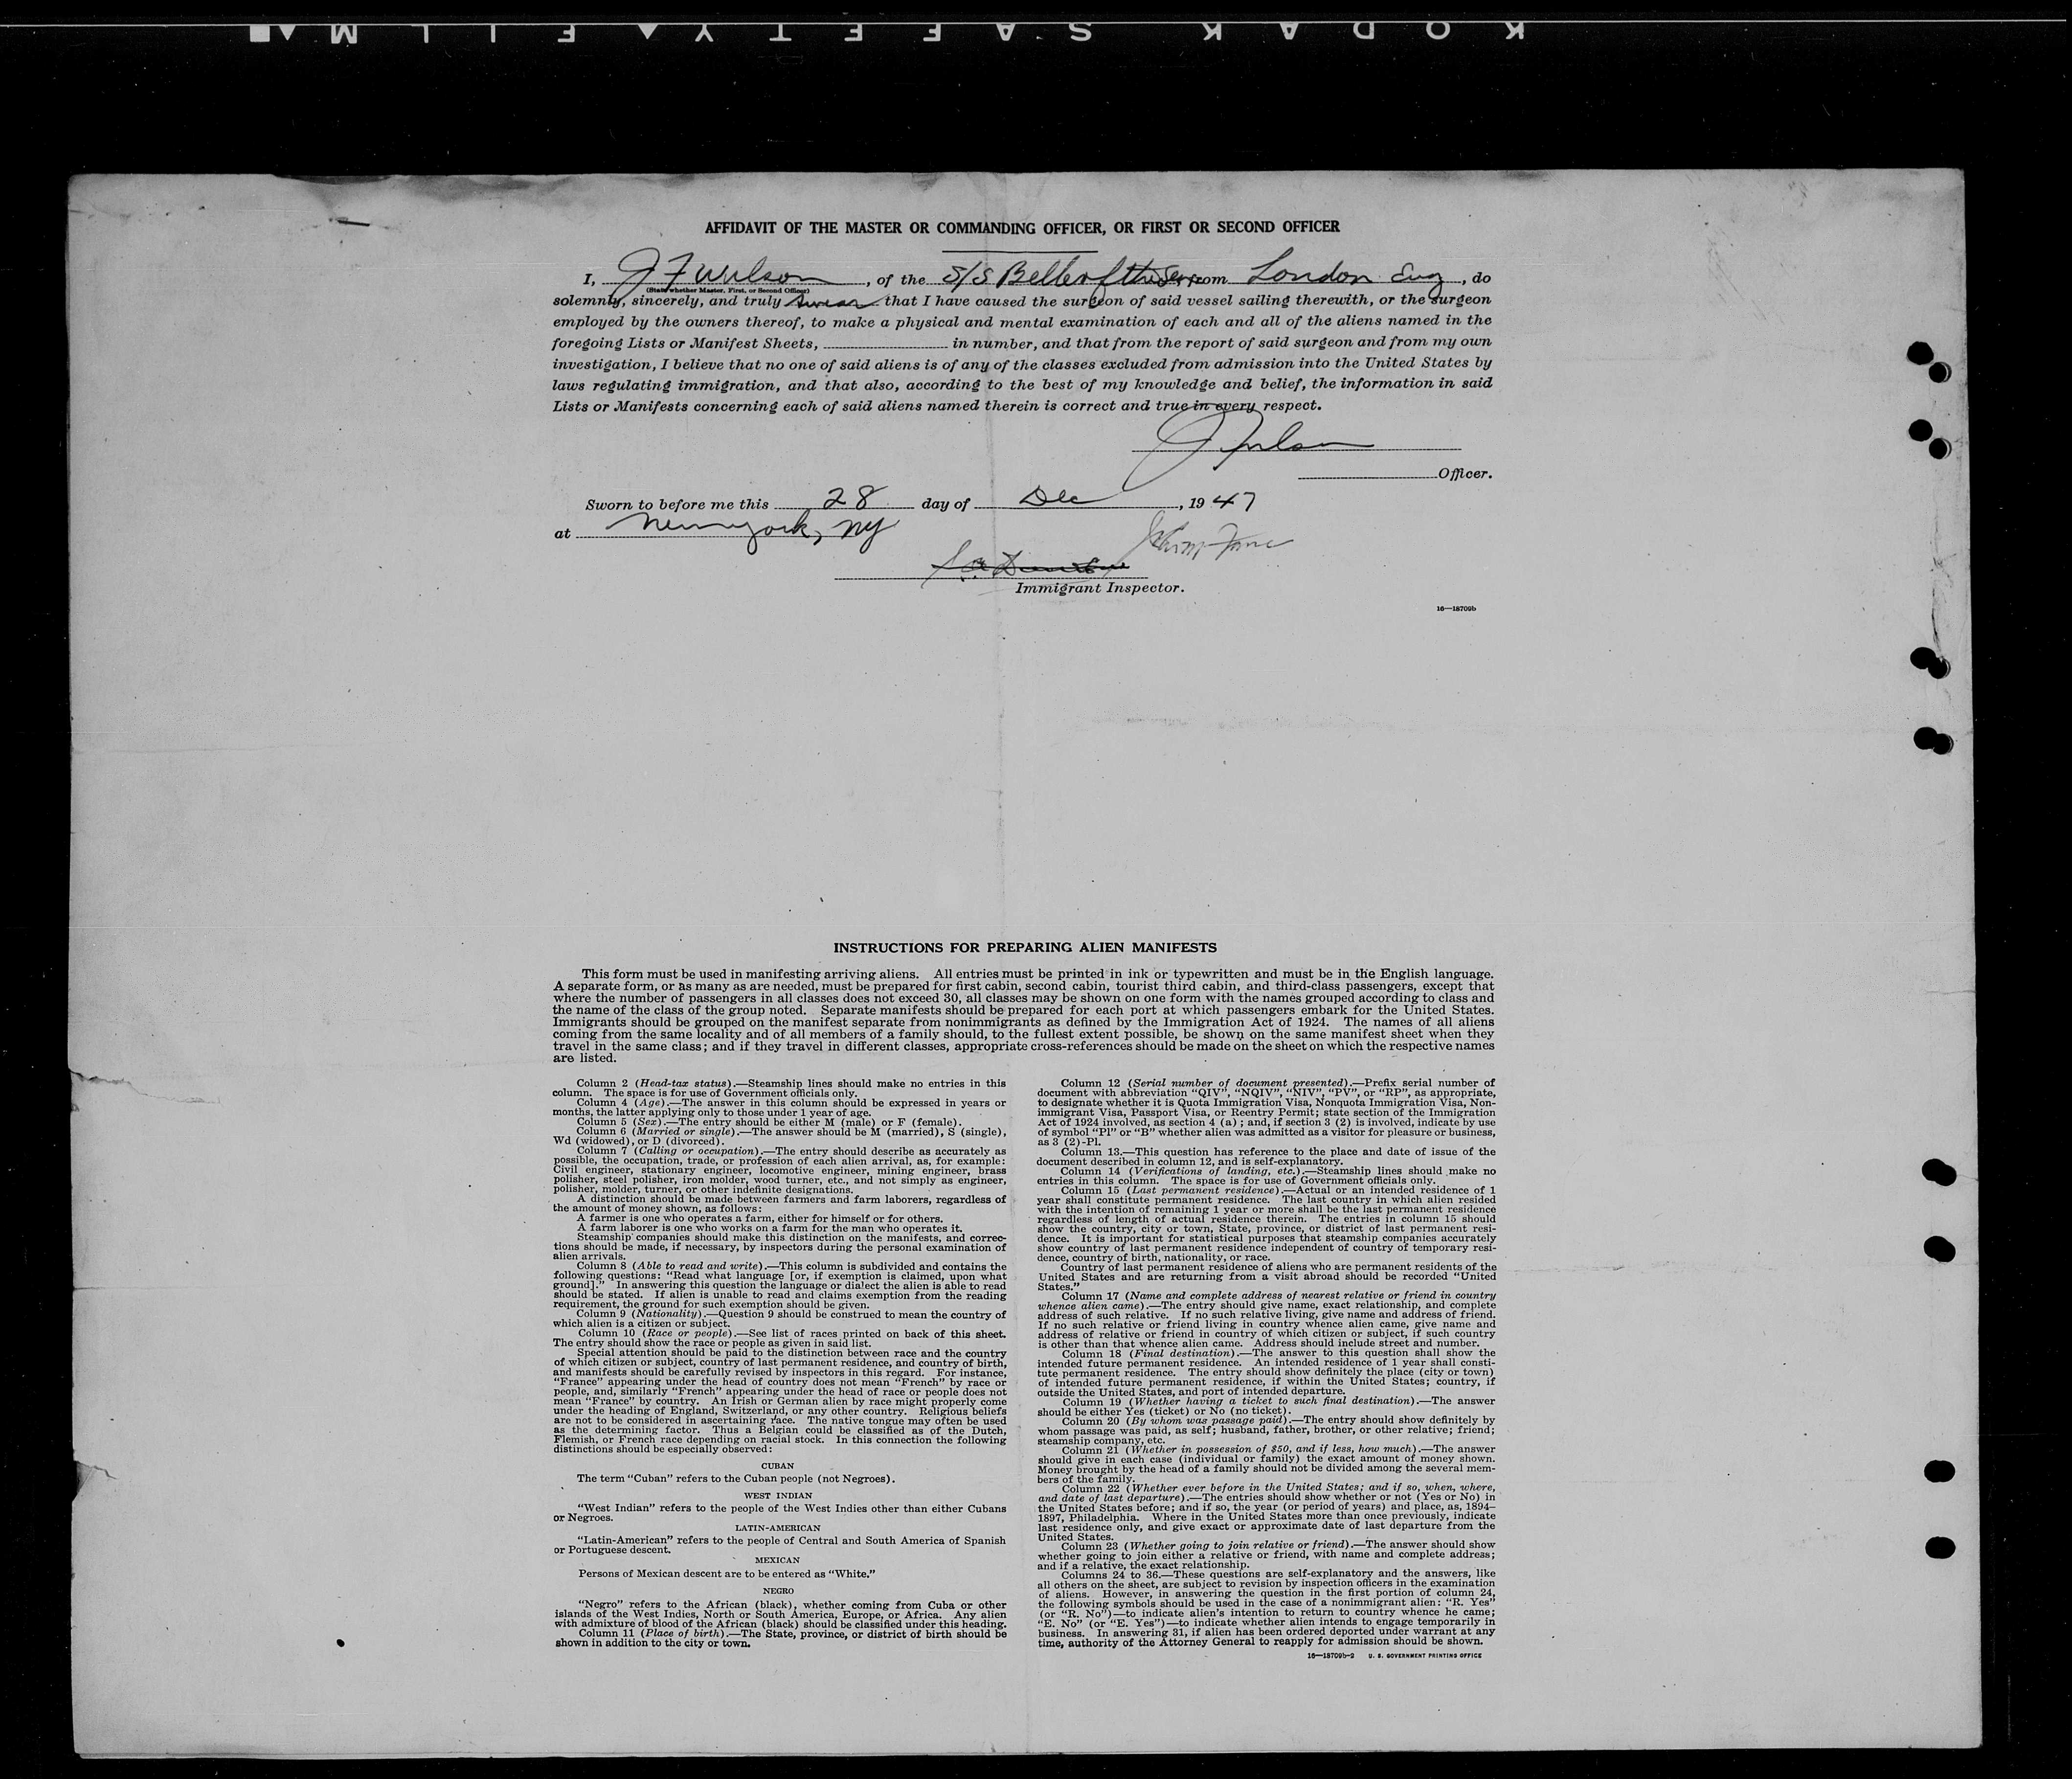 KODAK SAFETY FILM
AFFIDAVIT OF THE MASTER OR COMMANDING OFFICER, OR FIRST OR SECOND OFFICER
I, J F Wilson, of the S/S Belle of the Sea from London Eng, do
(State whether Master, First, or Second Officer)
solemnly, sincerely, and truly swear that I have caused the surgeon of said vessel sailing therewith, or the surgeon
employed by the owners thereof, to make a physical and mental examination of each and all of the aliens named in the
foregoing Lists or Manifest Sheets, in number, and that from the report of said surgeon and from my own
investigation, I believe that no one of said aliens is of any of the classes excluded from admission into the United States by
laws regulating immigration, and that also, according to the best of my knowledge and belief, the information in said
Lists or Manifests concerning each of said aliens named therein is correct and true in every respect.
J F Wilson
Officer.
Sworn to before me this 28 day of Dec, 19 47
at New York, NY
Immigrant Inspector.
16—18709b
INSTRUCTIONS FOR PREPARING ALIEN MANIFESTS
This form must be used in manifesting arriving aliens. All entries must be printed in ink or typewritten and must be in the English language.
A separate form, or as many as are needed, must be prepared for first cabin, second cabin, tourist third cabin, and third-class passengers, except that
where the number of passengers in all classes does not exceed 30, all classes may be shown on one form with the names grouped according to class and
the name of the class of the group noted. Separate manifests should be prepared for each port at which passengers embark for the United States.
Immigrants should be grouped on the manifest separate from nonimmigrants as defined by the Immigration Act of 1924. The names of all aliens
coming from the same locality and of all members of a family should, to the fullest extent possible, be shown on the same manifest sheet when they
travel in the same class; and if they travel in different classes, appropriate cross-references should be made on the sheet on which the respective names
are listed.
Column 2 (Head-tax status).—Steamship lines should make no entries in this
column. The space is for use of Government officials only.
Column 4 (Age).—The answer in this column should be expressed in years or
months, the latter applying only to those under 1 year of age.
Column 5 (Sex).—The entry should be either M (male) or F (female).
Column 6 (Married or single).—The answer should be M (married), S (single),
Wd (widowed), or D (divorced).
Column 7 (Calling or occupation).—The entry should describe as accurately as
possible, the occupation, trade, or profession of each alien arrival, as, for example:
Civil engineer, stationary engineer, locomotive engineer, mining engineer, brass
polisher, steel polisher, iron molder, wood turner, etc., and not simply as engineer,
polisher, molder, turner, or other indefinite designations.
A distinction should be made between farmers and farm laborers, regardless of
the amount of money shown, as follows:
A farmer is one who operates a farm, either for himself or for others.
A farm laborer is one who works on a farm for the man who operates it.
Steamship companies should make this distinction on the manifests, and correc-
tions should be made, if necessary, by inspectors during the personal examination of
alien arrivals.
Column 8 (Able to read and write).—This column is subdivided and contains the
following questions: "Read what language [or, if exemption is claimed, upon what
ground]." In answering this question the language or dialect the alien is able to read
should be stated. If alien is unable to read and claims exemption from the reading
requirement, the ground for such exemption should be given.
Column 9 (Nationality).—Question 9 should be construed to mean the country of
which alien is a citizen or subject.
Column 10 (Race or people).—See list of races printed on back of this sheet.
The entry should show the race or people as given in said list.
Special attention should be paid to the distinction between race and the country
of which citizen or subject, country of last permanent residence, and country of birth,
and manifests should be carefully revised by inspectors in this regard. For instance,
"France" appearing under the head of country does not mean "French" by race or
people, and, similarly "French" appearing under the head of race or people does not
mean "France" by country. An Irish or German alien by race might properly come
under the heading of England, Switzerland, or any other country. Religious beliefs
are not to be considered in ascertaining race. The native tongue may often be used
as the determining factor. Thus a Belgian could be classified as of the Dutch,
Flemish, or French race depending on racial stock. In this connection the following
distinctions should be especially observed:
CUBAN
The term "Cuban" refers to the Cuban people (not Negroes).
WEST INDIAN
"West Indian" refers to the people of the West Indies other than either Cubans
or Negroes.
LATIN-AMERICAN
"Latin-American" refers to the people of Central and South America of Spanish
or Portuguese descent.
MEXICAN
Persons of Mexican descent are to be entered as "White."
NEGRO
"Negro" refers to the African (black), whether coming from Cuba or other
islands of the West Indies, North or South America, Europe, or Africa. Any alien
with admixture of blood of the African (black) should be classified under this heading.
Column 11 (Place of birth).—The State, province, or district of birth should be
shown in addition to the city or town.
Column 12 (Serial number of document presented).—Prefix serial number of
document with abbreviation "QIV", "NQIV", "NIV", "PV", or "RP", as appropriate,
to designate whether it is Quota Immigration Visa, Nonquota Immigration Visa, Non-
immigrant Visa, Passport Visa, or Reentry Permit; state section of the Immigration
Act of 1924 involved, as section 4 (a); and, if section 3 (2) is involved, indicate by use
of symbol "Pl" or "B" whether alien was admitted as a visitor for pleasure or business,
as 3 (2)-Pl.
Column 13.—This question has reference to the place and date of issue of the
document described in column 12, and is self-explanatory.
Column 14 (Verifications of landing, etc.).—Steamship lines should make no
entries in this column. The space is for use of Government officials only.
Column 15 (Last permanent residence).—Actual or an intended residence of 1
year shall constitute permanent residence. The last country in which alien resided
with the intention of remaining 1 year or more shall be the last permanent residence
regardless of length of actual residence therein. The entries in column 15 should
show the country, city or town, State, province, or district of last permanent resi-
dence. It is important for statistical purposes that steamship companies accurately
show country of last permanent residence independent of country of temporary resi-
dence, country of birth, nationality, or race.
Country of last permanent residence of aliens who are permanent residents of the
United States and are returning from a visit abroad should be recorded "United
States."
Column 17 (Name and complete address of nearest relative or friend in country
whence alien came).—The entry should give name, exact relationship, and complete
address of such relative. If no such relative living, give name and address of friend.
If no such relative or friend living in country whence alien came, give name and
address of relative or friend in country of which citizen or subject, if such country
is other than that whence alien came. Address should include street and number.
Column 18 (Final destination).—The answer to this question shall show the
intended future permanent residence. An intended residence of 1 year shall consti-
tute permanent residence. The entry should show definitely the place (city or town)
of intended future permanent residence, if within the United States; country, if
outside the United States, and port of intended departure.
Column 19 (Whether having a ticket to such final destination).—The answer
should be either Yes (ticket) or No (no ticket).
Column 20 (By whom was passage paid).—The entry should show definitely by
whom passage was paid, as self; husband, father, brother, or other relative; friend;
steamship company, etc.
Column 21 (Whether in possession of $50, and if less, how much).—The answer
should give in each case (individual or family) the exact amount of money shown.
Money brought by the head of a family should not be divided among the several mem-
bers of the family.
Column 22 (Whether ever before in the United States; and if so, when, where,
and date of last departure).—The entries should show whether or not (Yes or No) in
the United States before; and if so, the year (or period of years) and place, as, 1894–
1897, Philadelphia. Where in the United States more than once previously, indicate
last residence only, and give exact or approximate date of last departure from the
United States.
Column 23 (Whether going to join relative or friend).—The answer should show
whether going to join either a relative or friend, with name and complete address;
and if a relative, the exact relationship.
Columns 24 to 36.—These questions are self-explanatory and the answers, like
all others on the sheet, are subject to revision by inspection officers in the examination
of aliens. However, in answering the question in the first portion of column 24,
the following symbols should be used in the case of a nonimmigrant alien: "R. Yes"
(or "R. No")—to indicate alien's intention to return to country whence he came;
"E. No" (or "E. Yes")—to indicate whether alien intends to engage temporarily in
business. In answering 31, if alien has been ordered deported under warrant at any
time, authority of the Attorney General to reapply for admission should be shown.
16—18709b-2 U. S. GOVERNMENT PRINTING OFFICE